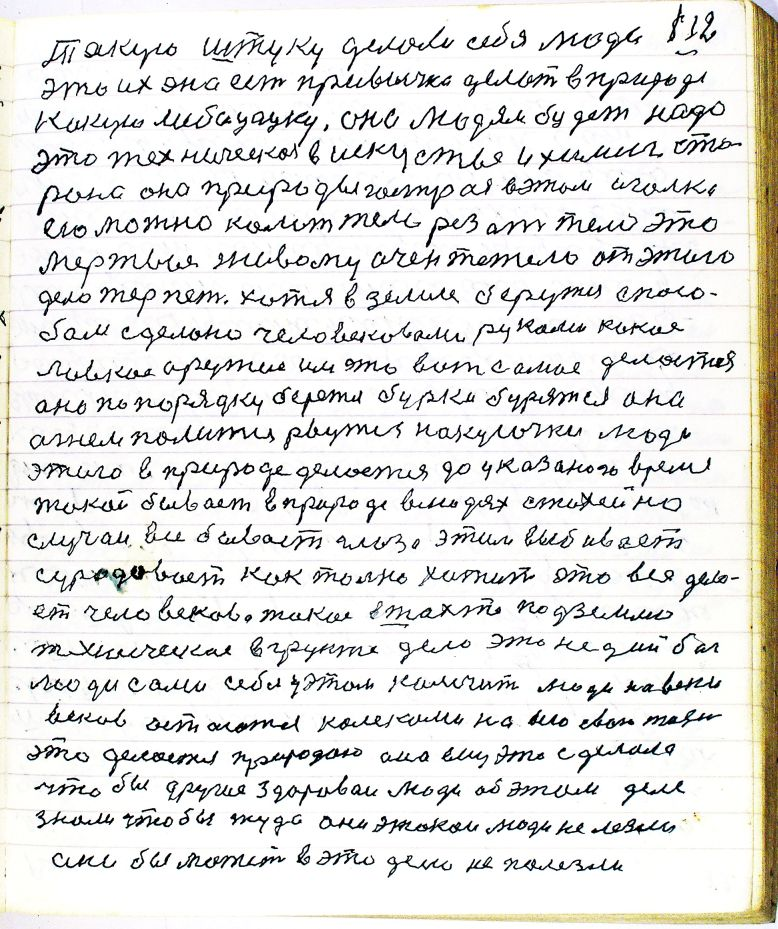 112
Такую штуку делоли себя люди
это ихэна сет привычка делот в природе
какую либа цацку. она людям будет надо
это техническая в искуства и химии сто-
рона она природы гострая в этом иголка
его можно колит тело резат тело это
мертвыя живому очен тежело от этого
дело терпет. хотя в земле берутся спосо-
бом сделоно человековами рукоми какое
ловкое аружие им это вот самое делоется
ано по порядку берется бурки бурятся она
агнем полится рвутся на кусочки люди
этого в природе делоется до указаного время
такой бывает в природе в людях стихейно
случаи все бывает глаза этим выбивает
суродовает как толко хотит это все дело-
ет человеков. такое в шахте под землю
техническое в грунте дело это не дий бог
люди сами себя у этом каличит люди на веки
веков остоются колекоми на
это делоется природою она ему это сделола
что бы другие здороваи люди об этом деле
знали чтобы туда они этокои люди не лезли
они бы может в это дело не полезли